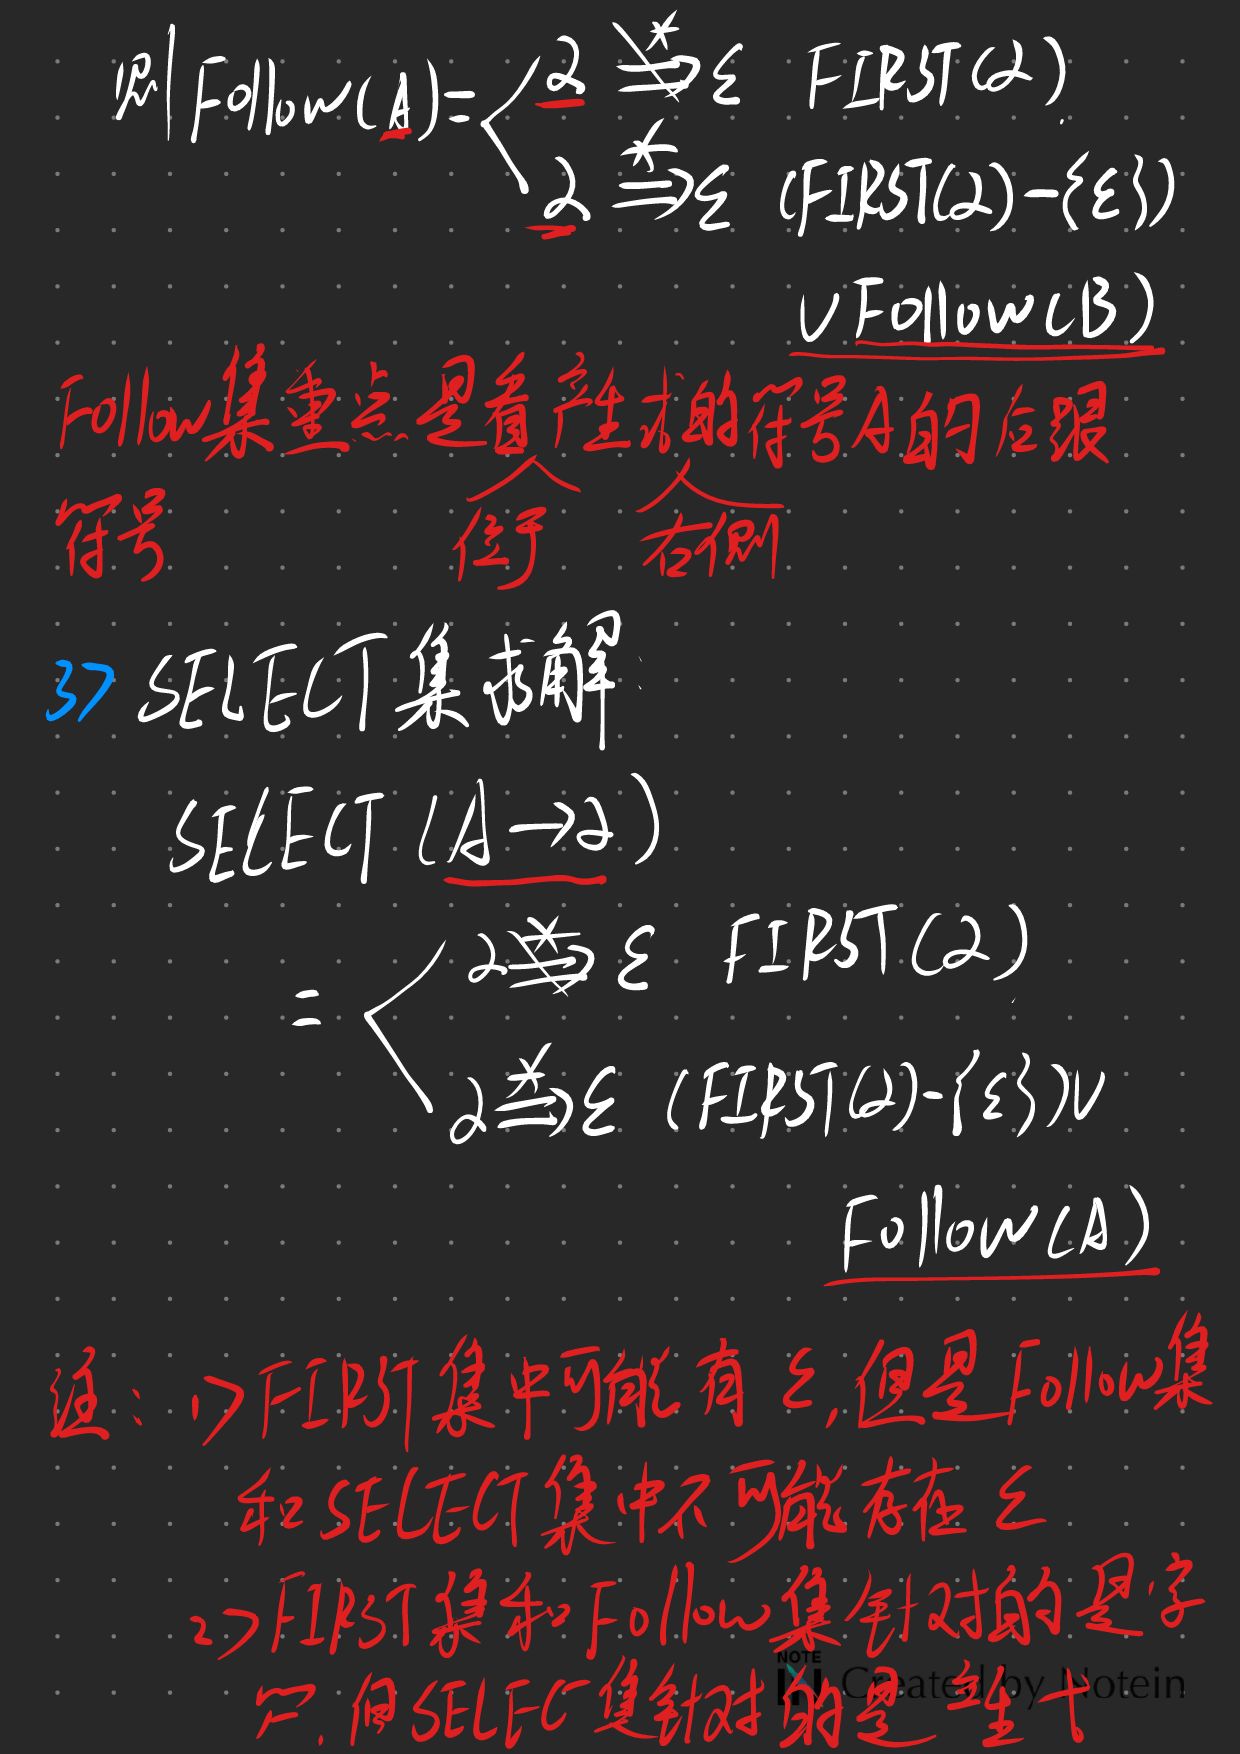 则Follow(A)= α ⇏* ε FIRST(α)
α ⇒* ε (FIRST(α)-{ε})
∪Follow(B)
Follow集重点是看产生式的符号A的后跟
符号 位于 右侧
3> SELECT集求解:
SELECT(A→α)
= α ⇏* ε FIRST(α)
α ⇒* ε (FIRST(α)-{ε})∪
Follow(A)
注: 1>FIRST集中可能有ε,但是Follow集
和SELECT集中不可能存在ε
2>FIRST集和Follow集针对的是字
符,但SELECT集针对的是产生式
NOTE
Created by Notein